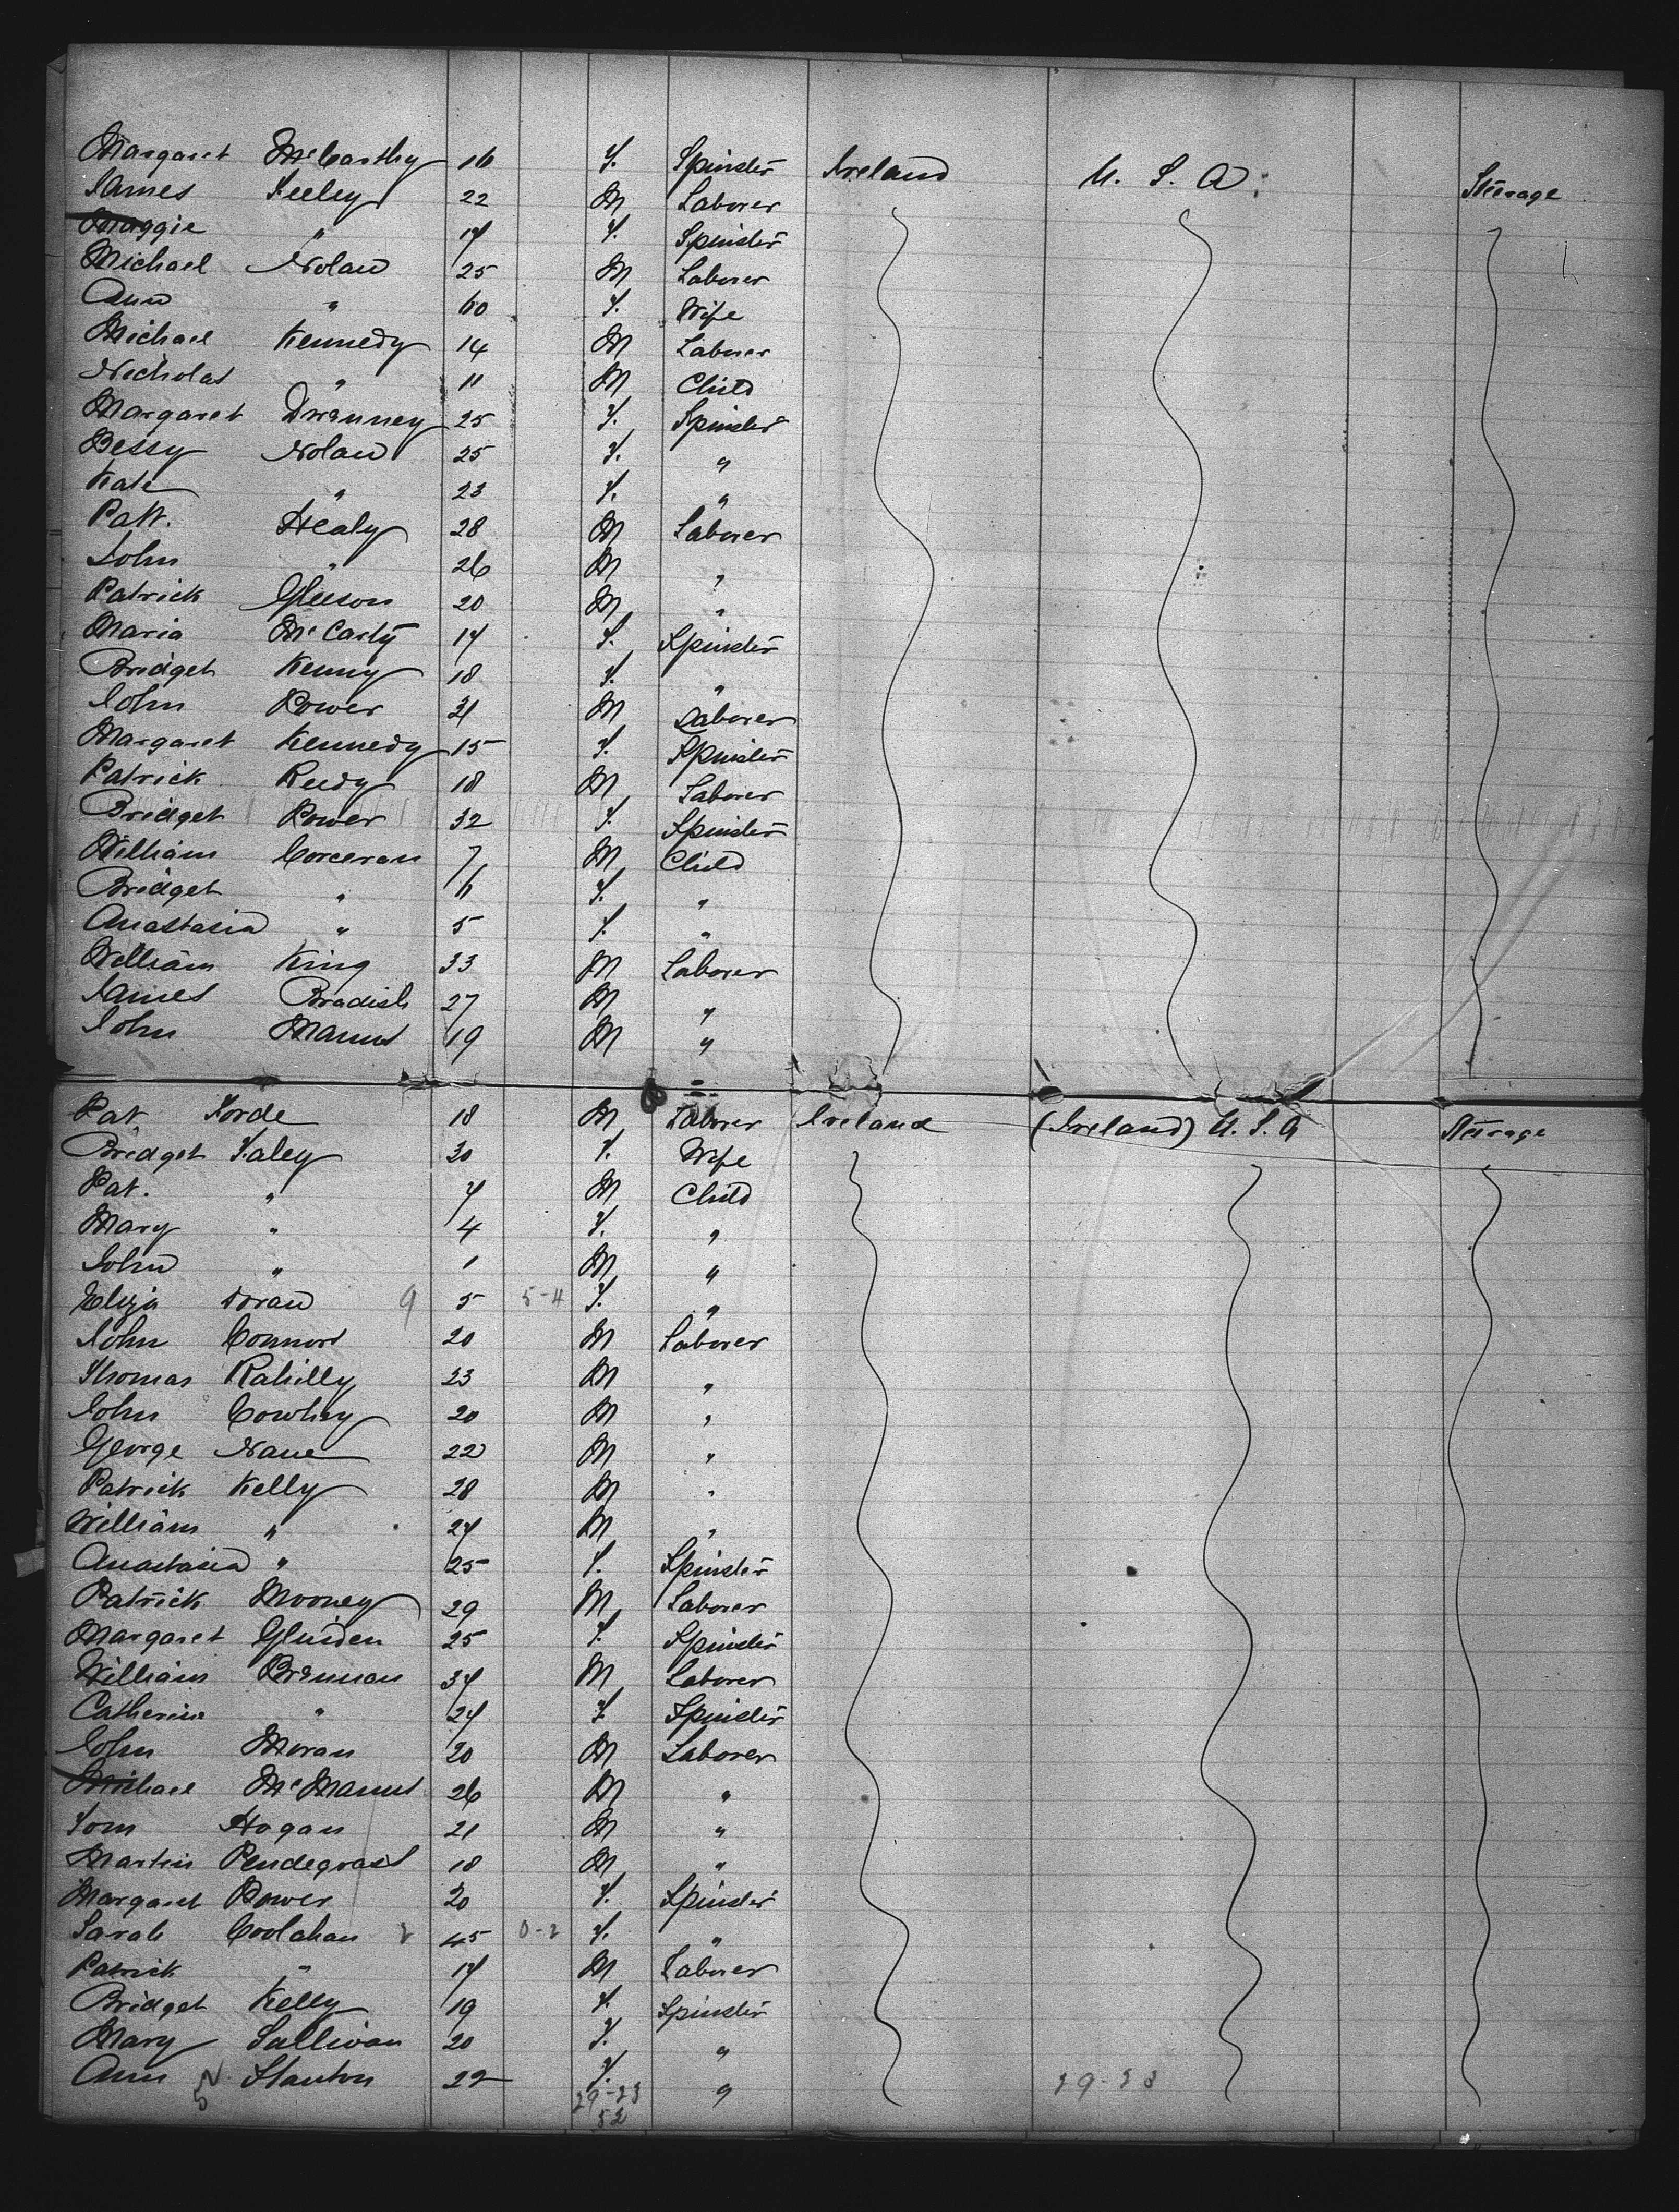 Margaret McCarthy 16 F. Spinster Ireland U. S. A. Steerage
James Feeley 22 M Laborer
Maggie " 17 F. Spinster
Michael Nolan 25 M Laborer
Ann " 60 F. Wife
Michael Kennedy 14 M Laborer
Nicholas " 11 M Child
Margaret 25 F. Spinster
Bessy Nolan 25 F. "
Kate " 23 F. "
Patt. Healy 28 M Laborer
John " 26 M "
Patrick Gleeson 20 M "
Maria McCarty 17 F. Spinster
Bridget Kenny 18 F. "
John Power 31 M Laborer
Margaret Kennedy 15 F. Spinster
Patrick Reedy 18 M Laborer
Bridget Power 32 F. Spinster
William Corceran 7 M Child
Bridget " 6 F. "
Anastasia " 5 F. "
William King 33 M Laborer
James Bradish 27 M "
John Manus 19 M "
Pat. Forde 18 M Laborer Ireland (Ireland) U. S. A Steerage
Bridget Faley 30 F. Wife
Pat. " 7 M Child
Mary " 4 F. "
John " 1 M "
Eliza Doran 9 5 5-4 F. "
John Connors 20 M Laborer
Thomas Rahilly 23 M "
John Cowhey 20 M "
George Nane 22 M "
Patrick Kelly 28 M "
William " 27 M "
Anastasia " 25 F. Spinster
Patrick Mooney 29 M Laborer
Margaret 25 F. Spinster
William Brennan 37 M Laborer
Catherine " 27 F. Spinster
John Moran 20 M Laborer
Michael McManus 26 M "
Tom Hogan 21 M "
Martin Pendegrast 18 M "
Margaret Power 20 F. Spinster
Sarah Coolahan 2 45 0-2 F. "
Patrick " 17 M Laborer
Bridget Kelly 19 F. Spinster
Mary Sullivan 20 F. "
Ann Stanton 22 F. "
52 29-23 29-23
52